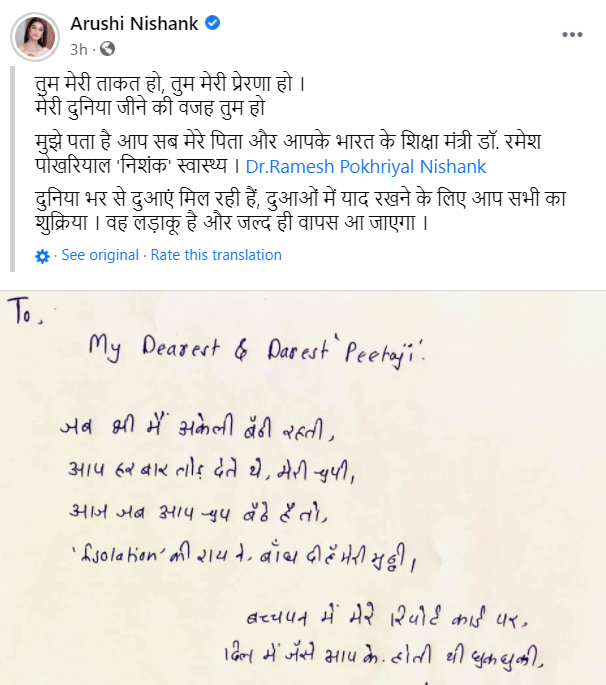 Arushi Nishank
3h ·
तुम मेरी ताकत हो, तुम मेरी प्रेरणा हो ।
मेरी दुनिया जीने की वजह तुम हो
मुझे पता है आप सब मेरे पिता और आपके भारत के शिक्षा मंत्री डॉ. रमेश
पोखरियाल 'निशंक' स्वास्थ्य । Dr.Ramesh Pokhriyal Nishank
दुनिया भर से दुआएं मिल रही हैं, दुआओं में याद रखने के लिए आप सभी का
शुक्रिया । वह लड़ाकू है और जल्द ही वापस आ जाएगा ।
· See original · Rate this translation
To,
My Dearest & Darest 'Peetaji'.
जब भी मैं अकेली बैठी रहती,
आप हर बार तोड़ देते थे, मेरी चुपी,
आज जब आप चुप बैठे हैं तो,
'Isolation' की राय ने, बाँध दी है मेरी मुट्ठी,
बच्चपन में मेरे रिपोर्ट कार्ड पर,
दिल में जैसे आप के होती थी धुकधुकी,